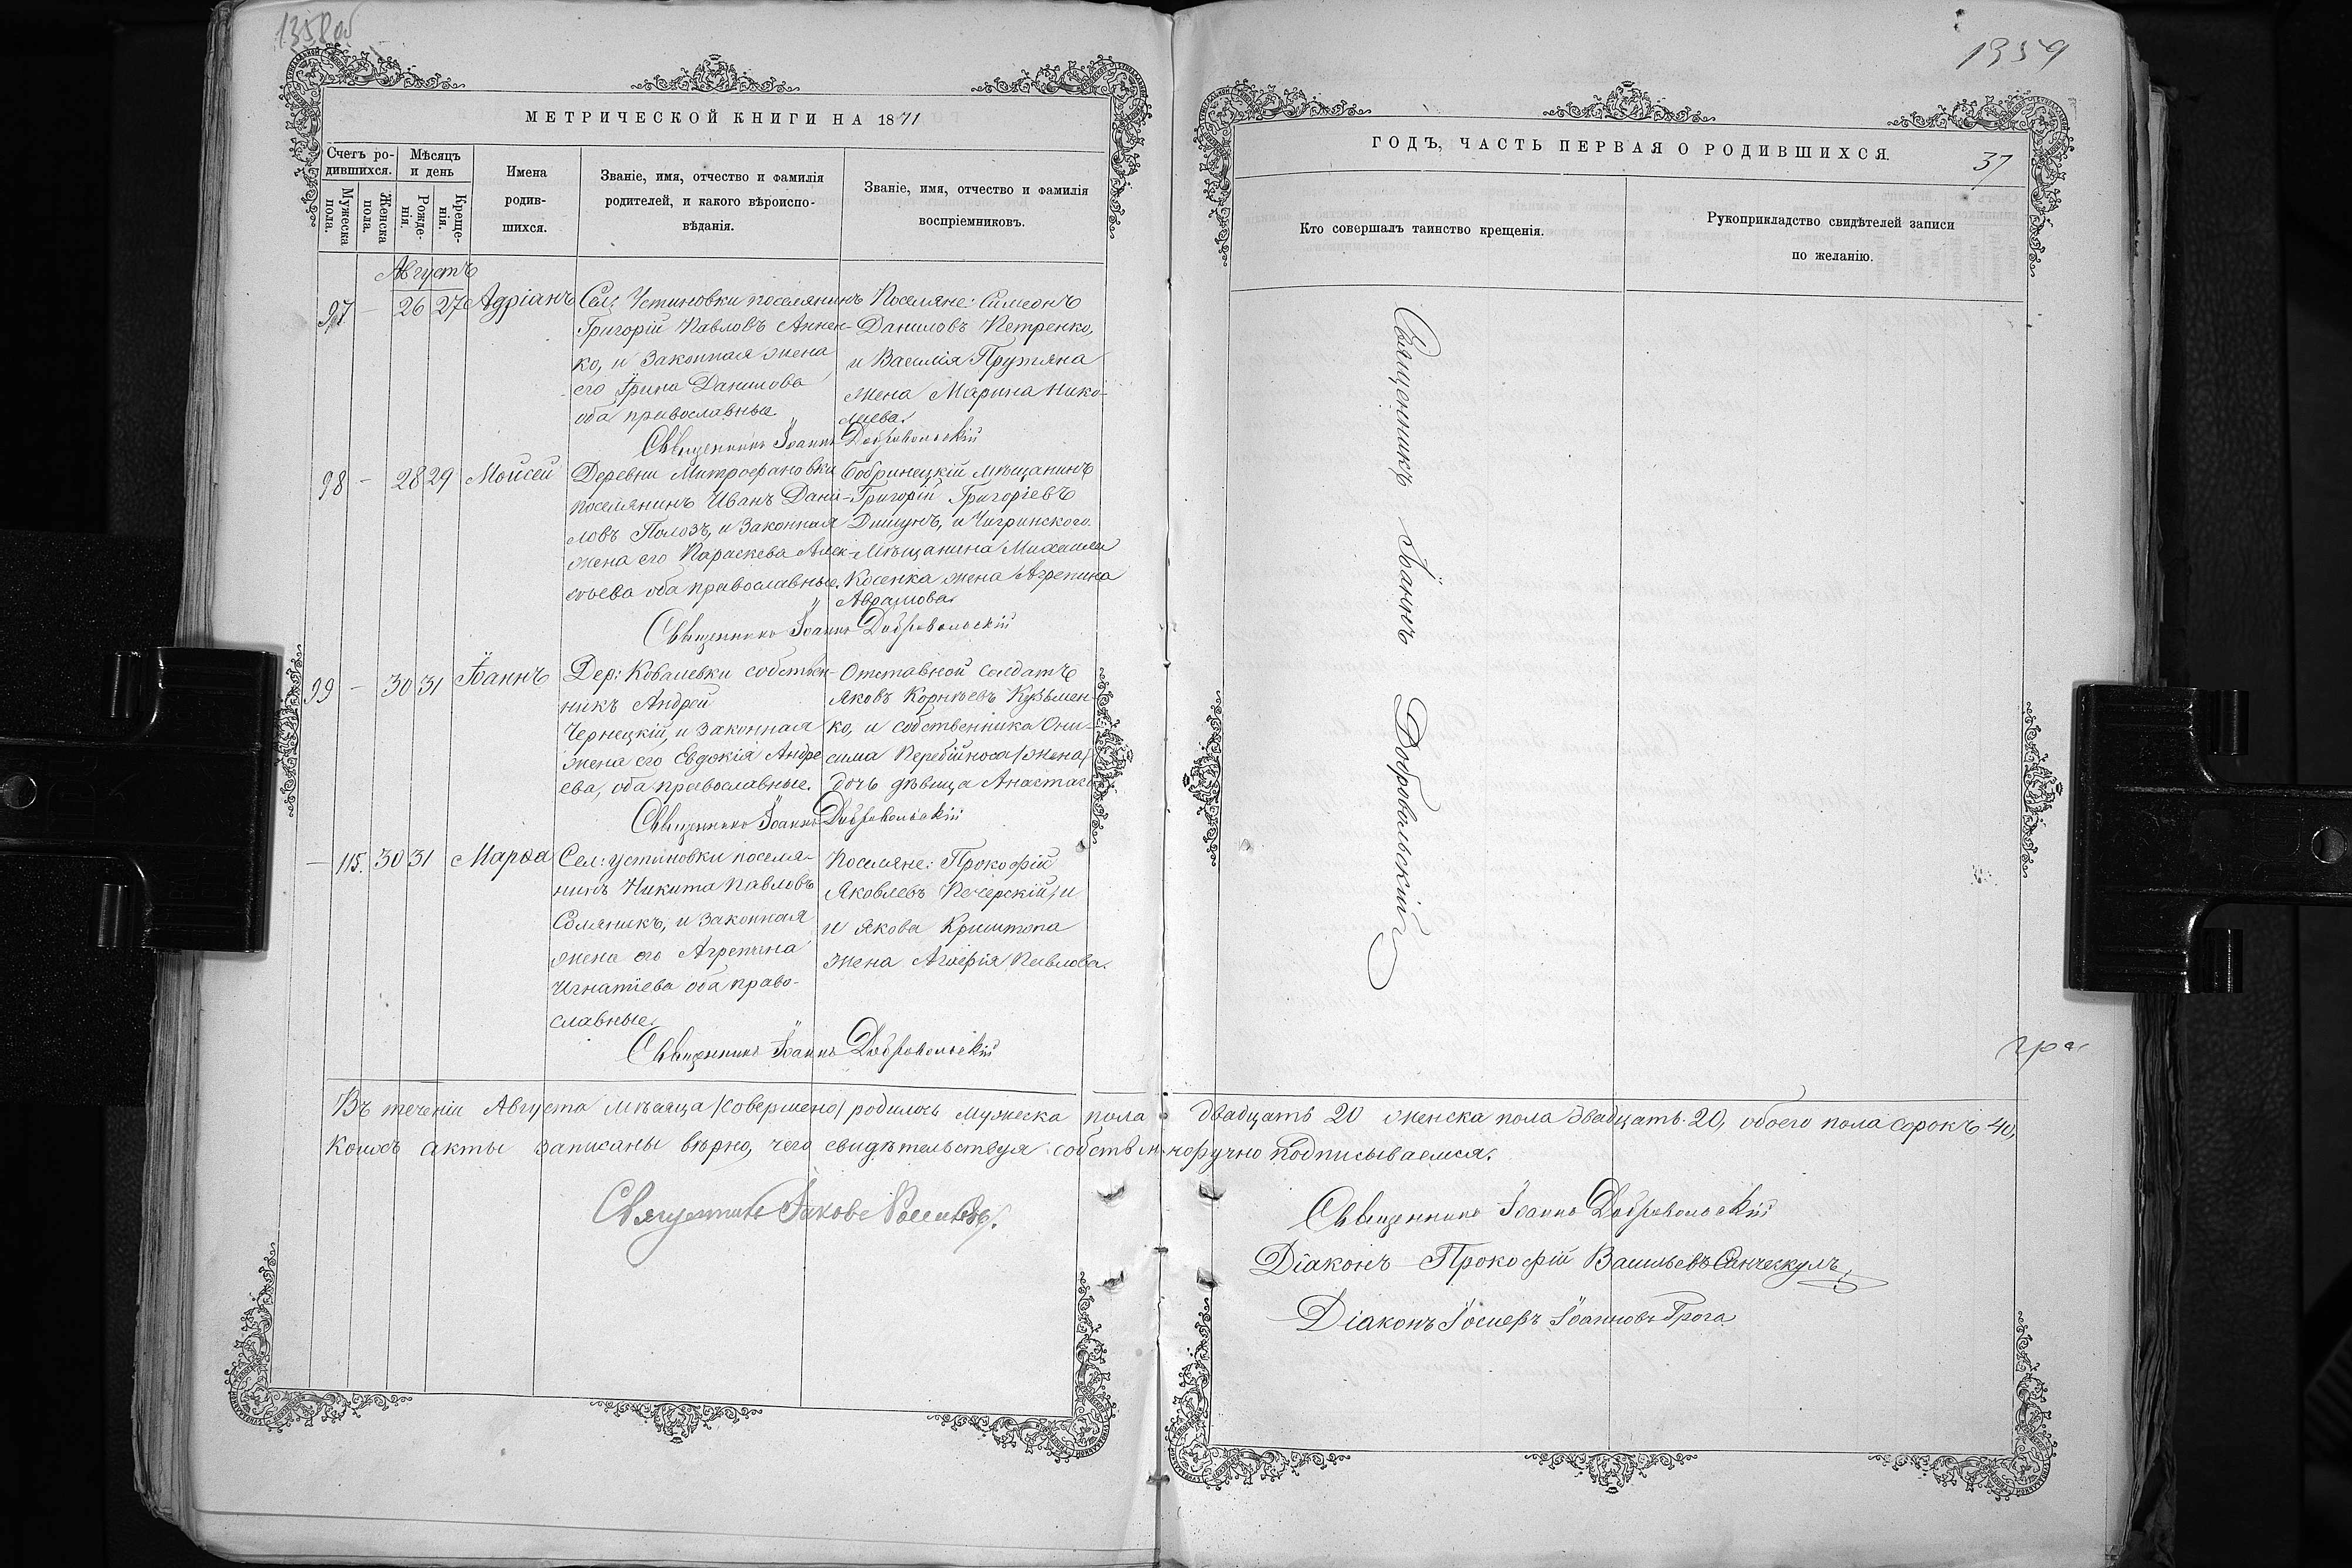 1358об
МЕТРИЧЕСКОЙ КНИГИ НА 1871
Счетъ ро-
дившихся.
Мѣсяцъ
и день
Мужеска
пола.
Женска
пола.
Рожде-
нія.
Креще-
нія.
Имена
родив-
шихся.
Званіе, имя, отчество и фамилія
родителей, и какого вѣроиспо-
вѣданія.
Званіе, имя, отчество и фамилія
воспріемниковъ.
Августъ
97 - 26 27 Адріанъ
Сел: Устиновки поселянинъ
Григорій Павловъ Аннен-
ко, и законная жена
его Ірина Данилова
оба православные.
Поселяне: Симеонъ
Даниловъ Петренко,
и Василія Прутяна
жена Марина Нико-
лаева.
Священникъ Іоаннъ Добровольскій
98 - 28 29 Моисей
Деревни Митрофановки
поселянинъ Иванъ Дани-
ловъ Полозъ, и законная
жена его Параскева Алек-
сѣева оба православные.
Бобринецкій мѣщанинъ
Григорій Григоріевъ
Дишунъ, и Чигринского
мѣщанина Михаила
Косенка жена Агрепина
Аврамова.
Священникъ Іоаннъ Добровольскій
99 - 30 31 Іоаннъ
Дер: Ковалевки собствен-
никъ Андрей
Чернецкій, и законная
жена его Евдокія Андре
ева, оба православные.
Отставной солдатъ
Яковъ Корнѣевъ Кузьмен-
ко, и собственника Они-
сима Перебійноса /жена/
дочь дѣвица Анастас
Священникъ Іоаннъ Добровольскій
- 115. 30 31 Марѳа
Сел: Устиновки поселя-
нинъ Никита Павловъ
Соляникъ, и законная
жена его Агрепина
Игнатіева оба право-
славные.
Поселяне: Прокофій
Яковлевъ Печерскій, и
и Якова Криштопа
жена Агафія Павлова.
Священникъ Іоаннъ Добровольскій
Въ теченіи Августа мѣсяца /совершено/ родилось мужеска пола
коихъ акты записаны вѣрно, чего свидѣтельствуя собственноручно подписываемся.
Священникъ Іаковъ
1359
ГОДЪ, ЧАСТЬ ПЕРВАЯ О РОДИВШИХСЯ.
37
Кто совершалъ таинство крещенія.
Рукоприкладство свидѣтелей записи
по желанію.
Священникъ Іоаннъ Добровольскій
гра
двадцать 20 женска пола двадцать 20, обоего пола сорокъ 40,
Священникъ Іоаннъ Добровольскій
Діаконъ Прокофій Васильевъ
Діаконъ Іосифъ Іоанновъ Грога